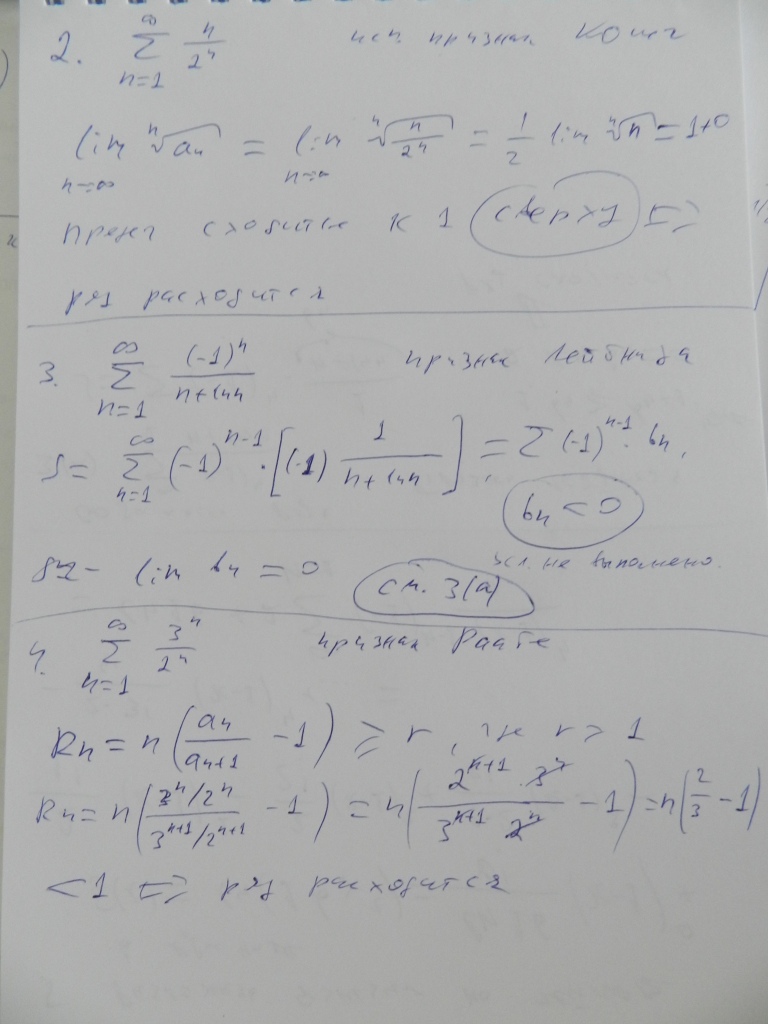 2. ∑_{n=1}^{∞} n/2^n исп. признак Коши
lim_{n→∞} ⁿ√a_n = lim_{n→∞} ⁿ√(n/2^n) = 1/2 lim ⁿ√n = 1+0
предел сходится к 1 сверху =>
ряд расходится
3. ∑_{n=1}^{∞} (-1)^n/(n+ln n) признак Лейбница
S = ∑_{n=1}^{∞} (-1)^{n-1} · [(-1) 1/(n+ln n)] = ∑ (-1)^{n-1} · b_n,
b_n < 0
lim b_n = 0 см. 3(а) усл. не выполнено.
4. ∑_{n=1}^{∞} 3^n/2^n признак Раабе
R_n = n(a_n/a_{n+1} - 1) ≥ r, где r > 1
R_n = n((3^n/2^n)/(3^{n+1}/2^{n+1}) - 1) = n((2^{n+1} · 3^n)/(3^{n+1} 2^n) - 1) = n(2/3 - 1)
< 1 => ряд расходится